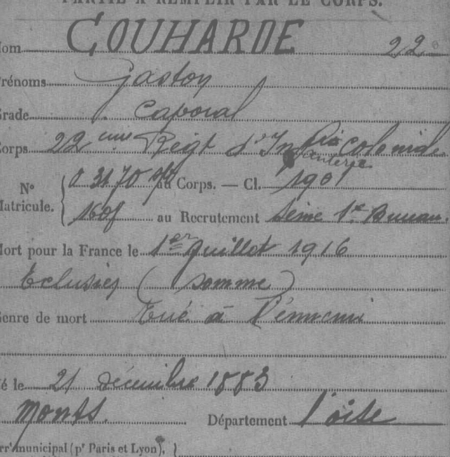 PARTIE A REMPLIR PAR LE CORPS.
Nom GOUHARDE 22
Prénoms Gaston
Grade Caporal
Corps 22eme Régt d'Infanterie Coloniale
N° Matricule. { 03170 au Corps. — Cl. 1901
1608 au Recrutement Seine 1er Bureau
Mort pour la France le 1er Juillet 1916
Eclusier (Somme)
Genre de mort Tué à l'ennemi
Né le 21 décembre 1883
Monts Département l'oise
arrt municipal (pr Paris et Lyon), }